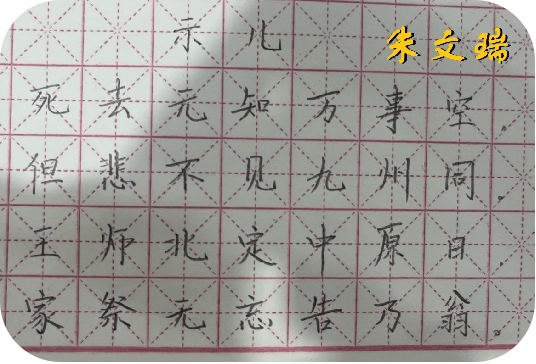 示儿
朱文瑞
死去元知万事空.
但悲不见九州同.
王师北定中原日.
家祭无忘告乃翁。